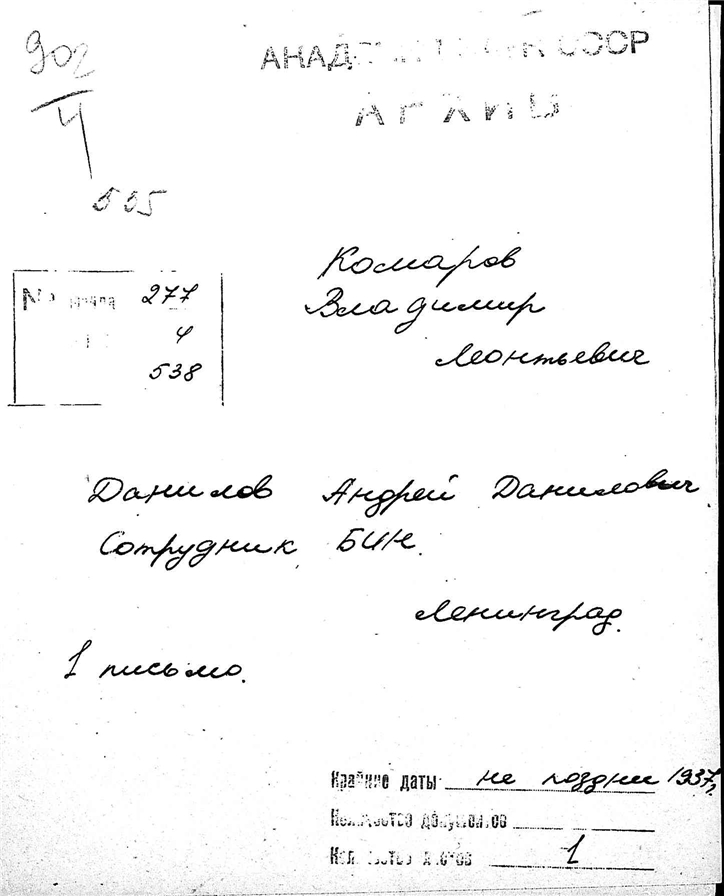 902
4
535
СССР
АРХИВ
Комаров
Владимир
Леонтьевич
№ 277
4
538
Данилов Андрей Данилович
Сотрудник БИН.
Ленинград.
1 письмо.
Крайние даты не поздни 1937г.
Количество документов
Количество листов 1